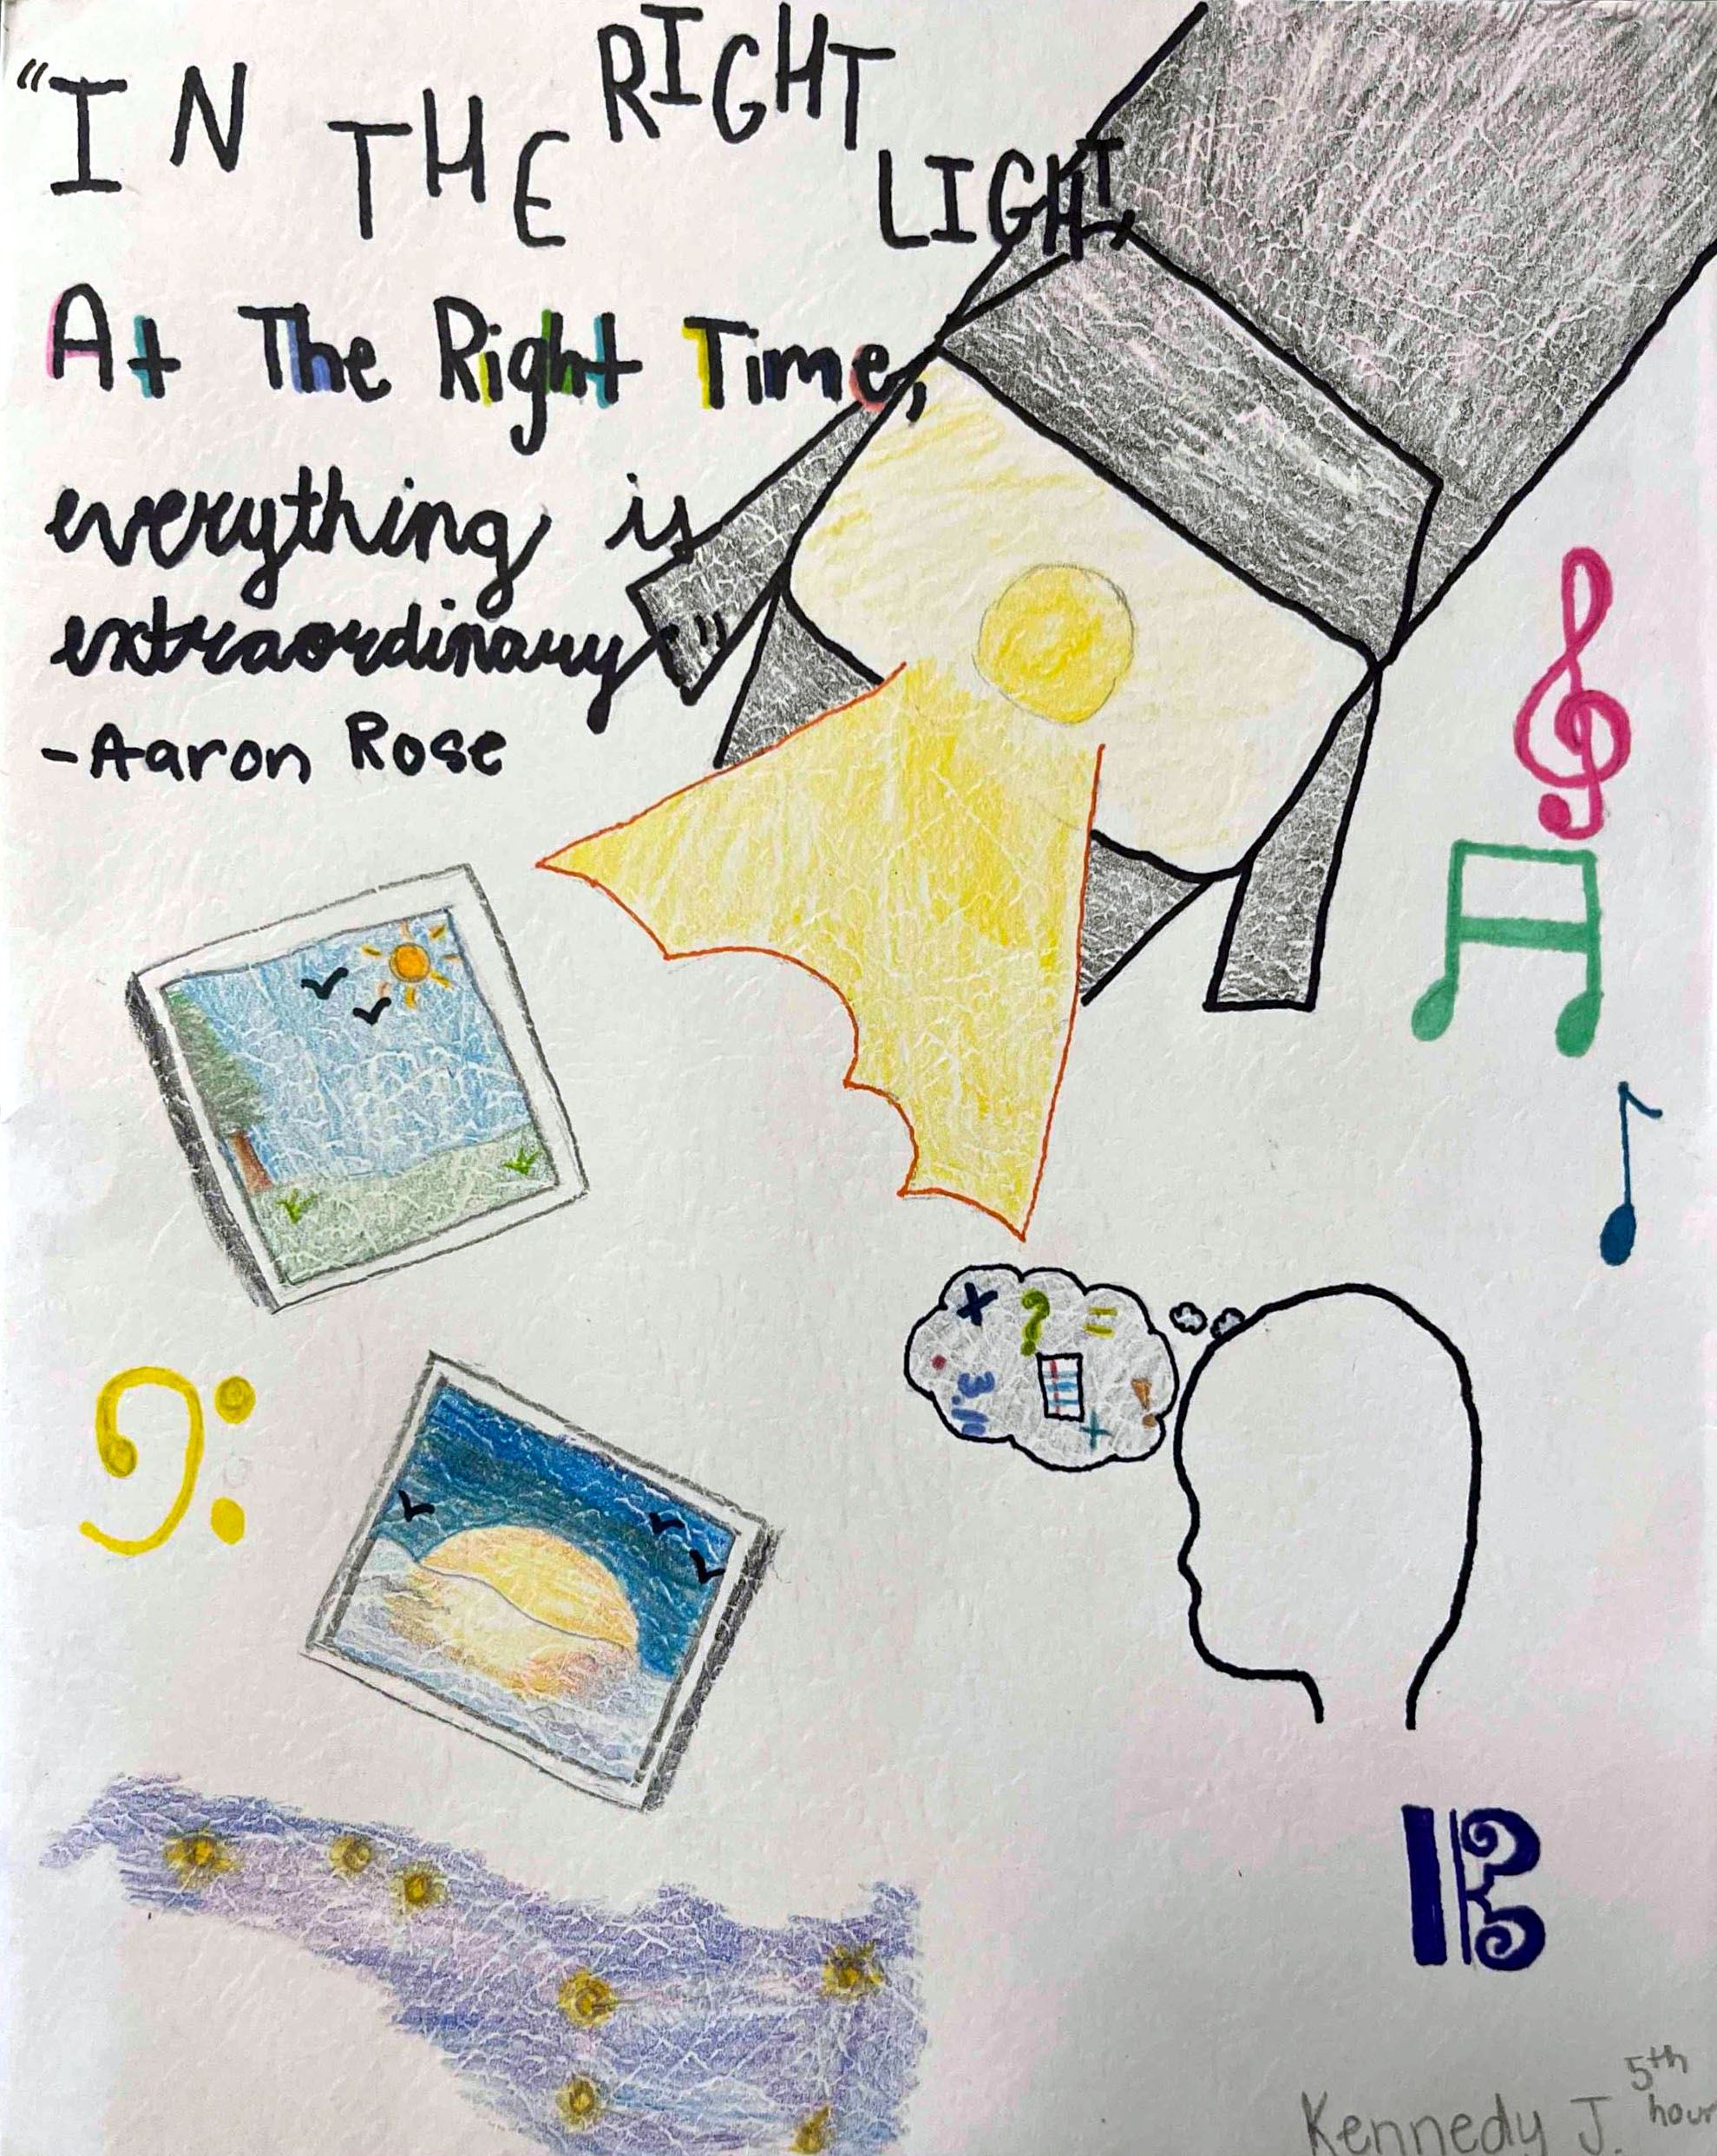 "IN THE RIGHT LIGHT,
At The Right Time,
everything is
extraordinary"
-Aaron Rose
x ? =
3.14
+ !
Kennedy J. 5th hour